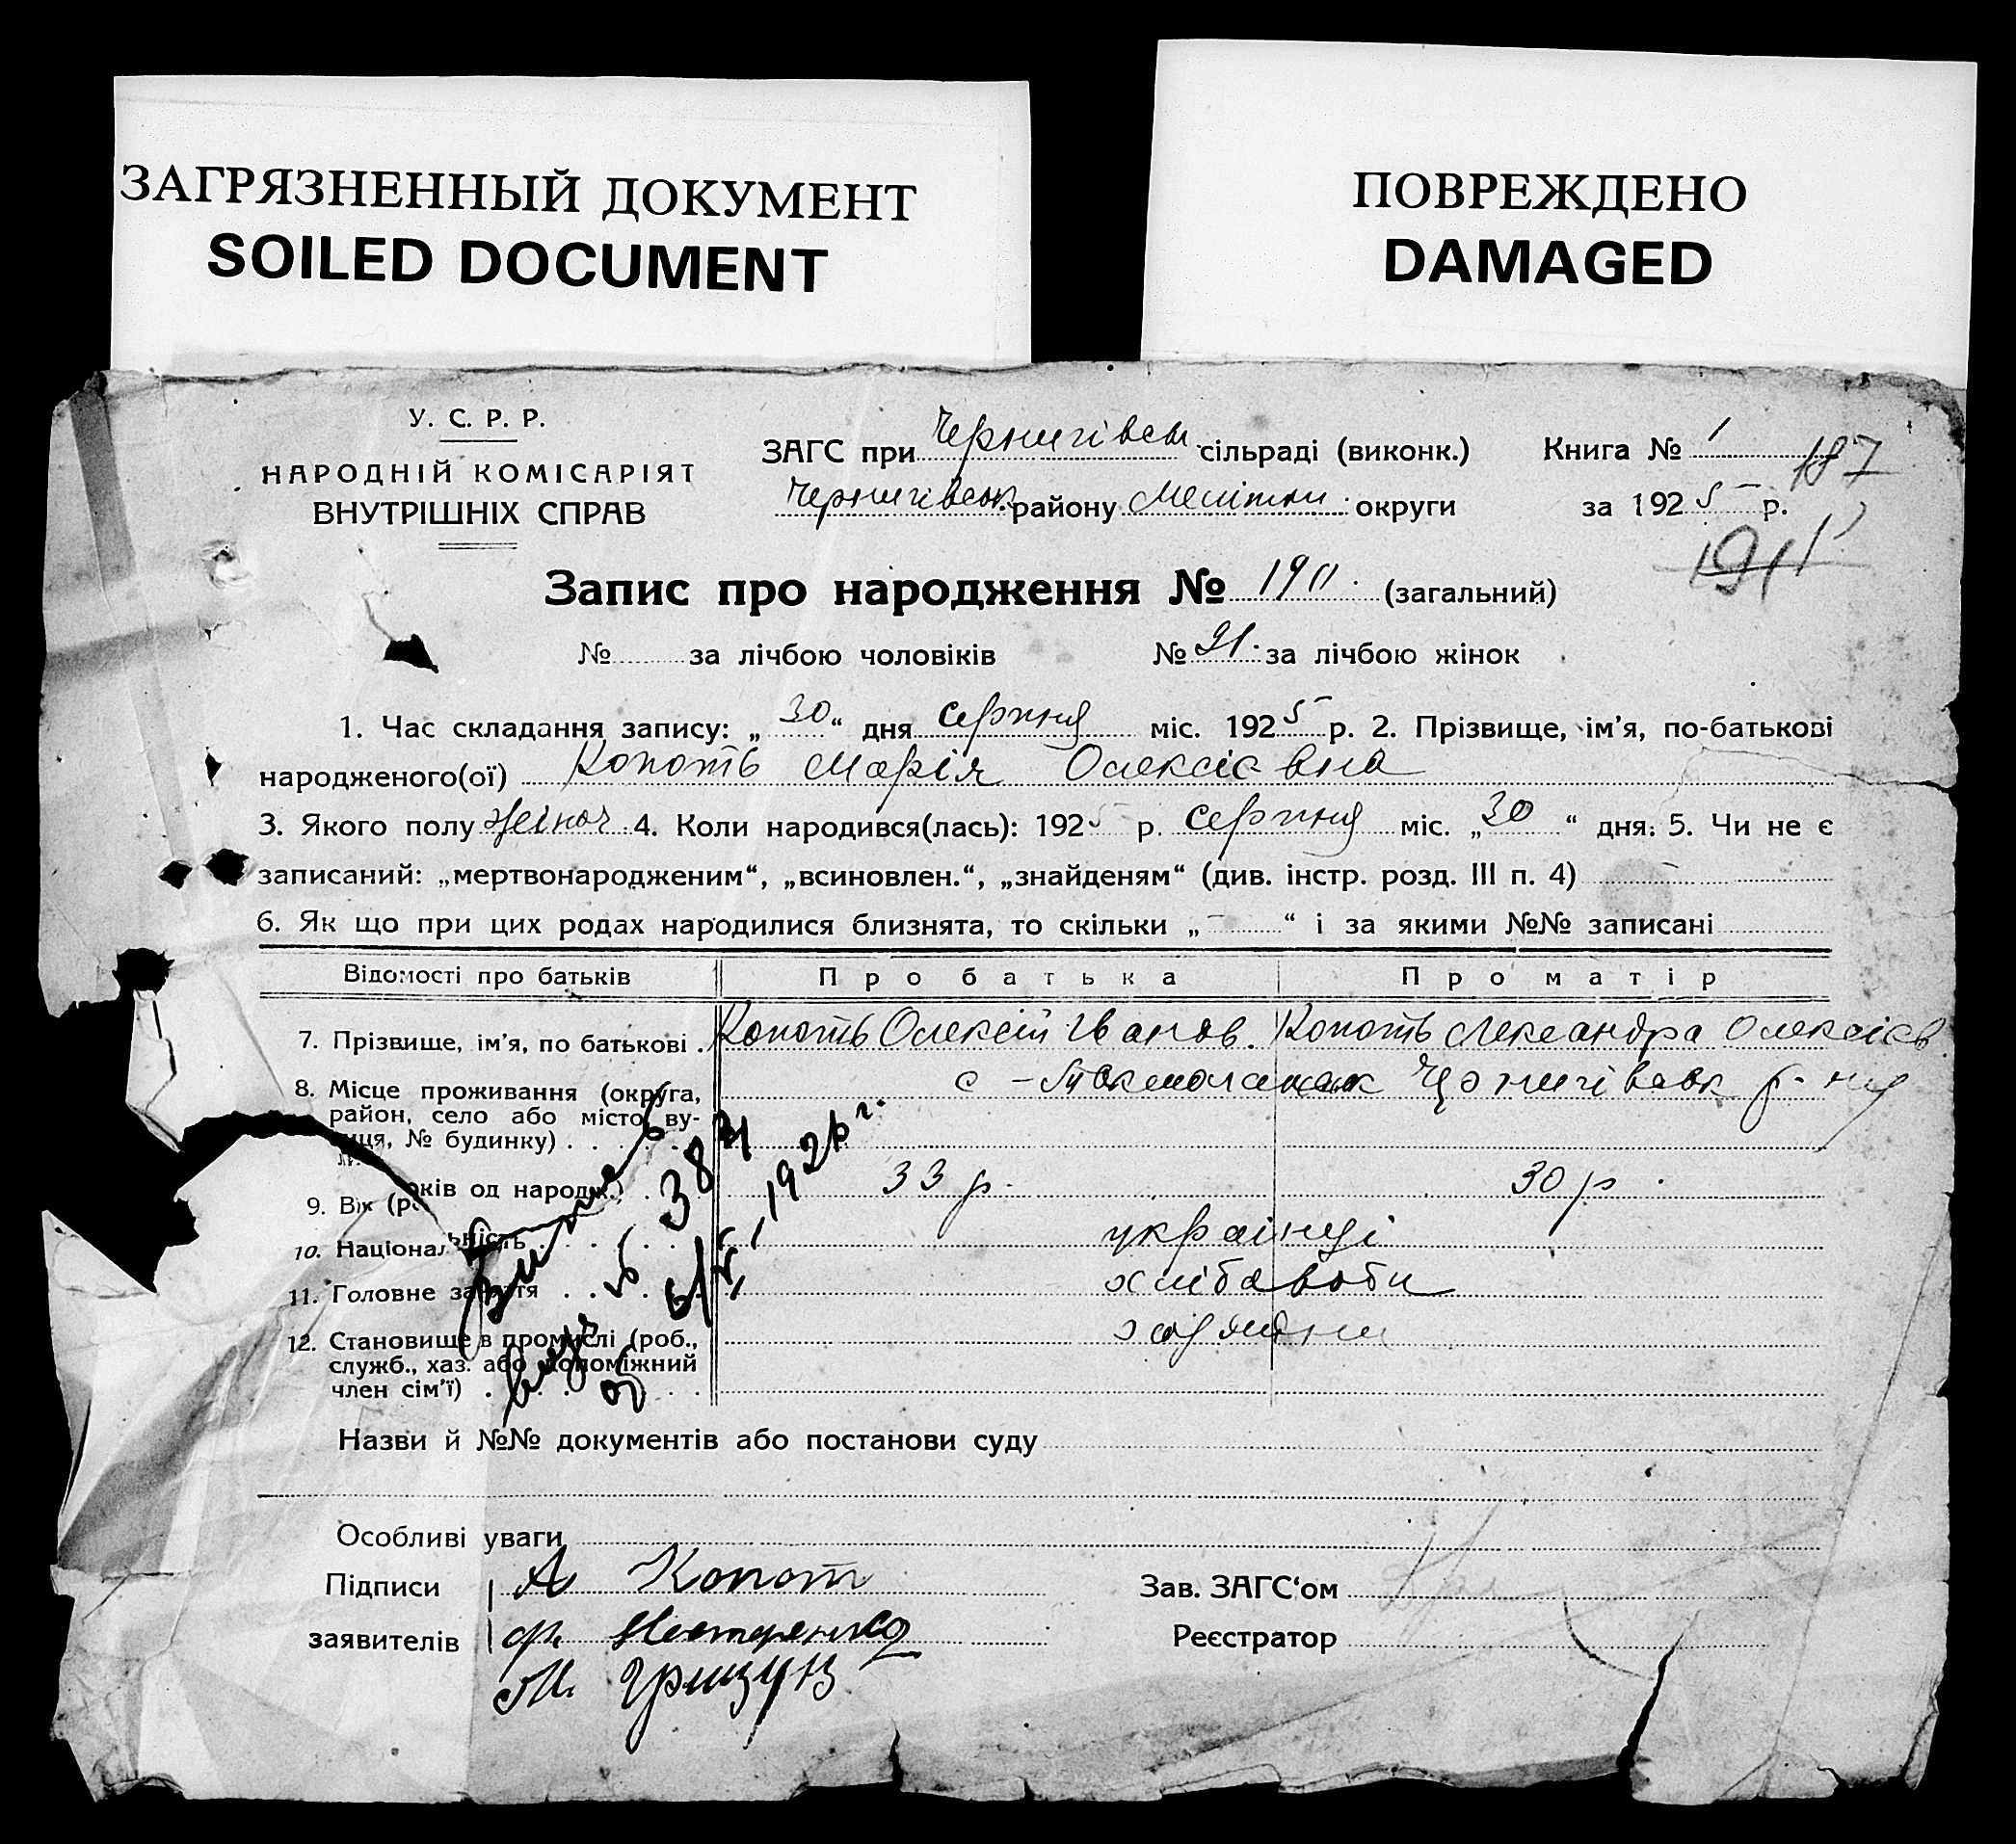 ЗАГРЯЗНЕННЫЙ ДОКУМЕНТ
SOILED DOCUMENT
ПОВРЕЖДЕНО
DAMAGED
У. С. Р. Р.
НАРОДНІЙ КОМІСАРІЯТ
ВНУТРІШНІХ СПРАВ
ЗАГС при Чернигівськ. сільраді (виконк.)
Чернигівськ. району Меліт. округи
Книга № 1
187
за 1925 р.
191
Запис про народження № 190. (загальний)
№ за лічбою чоловіків № 91. за лічбою жінок
1. Час складання запису: „30“ дня серпня міс. 1925 р. 2. Прізвище, ім'я, по-батькові
народженого(ої) Копоть Марія Олексієвна
3. Якого полу жіноч. 4. Коли народився(лась): 1925 р. серпня міс. „30“ дня. 5. Чи не є
записаний: „мертвонародженим“, „всиновлен.“, „знайденям“ (див. інстр. розд. III п. 4) —
6. Як що при цих родах народилися близнята, то скільки „—“ і за якими №№ записані
Відомості про батьків Про батька Про матір
7. Прізвище, ім'я, по батькові . Копоть Олексій Іванов. Копоть Олександра Олексієв
8. Місце проживання (округа, район, село або місто, вулиця, № будинку) . . . с. Чернигівськ р-ну
9. Вік (років од народж.) . 33 р. 30 р.
10. Національність . . . українці
11. Головне заняття . . . хлібороби
12. Становище в промислі (роб.,
служб., хаз. або допоміжний
член сім'ї) . . .
384
1926 г.
Назви й №№ документів або постанови суду
Особливі уваги
Підписи А Копот
заявителів Нестеренко
М. Грицун
Зав. ЗАГС‘ом
Реєстратор